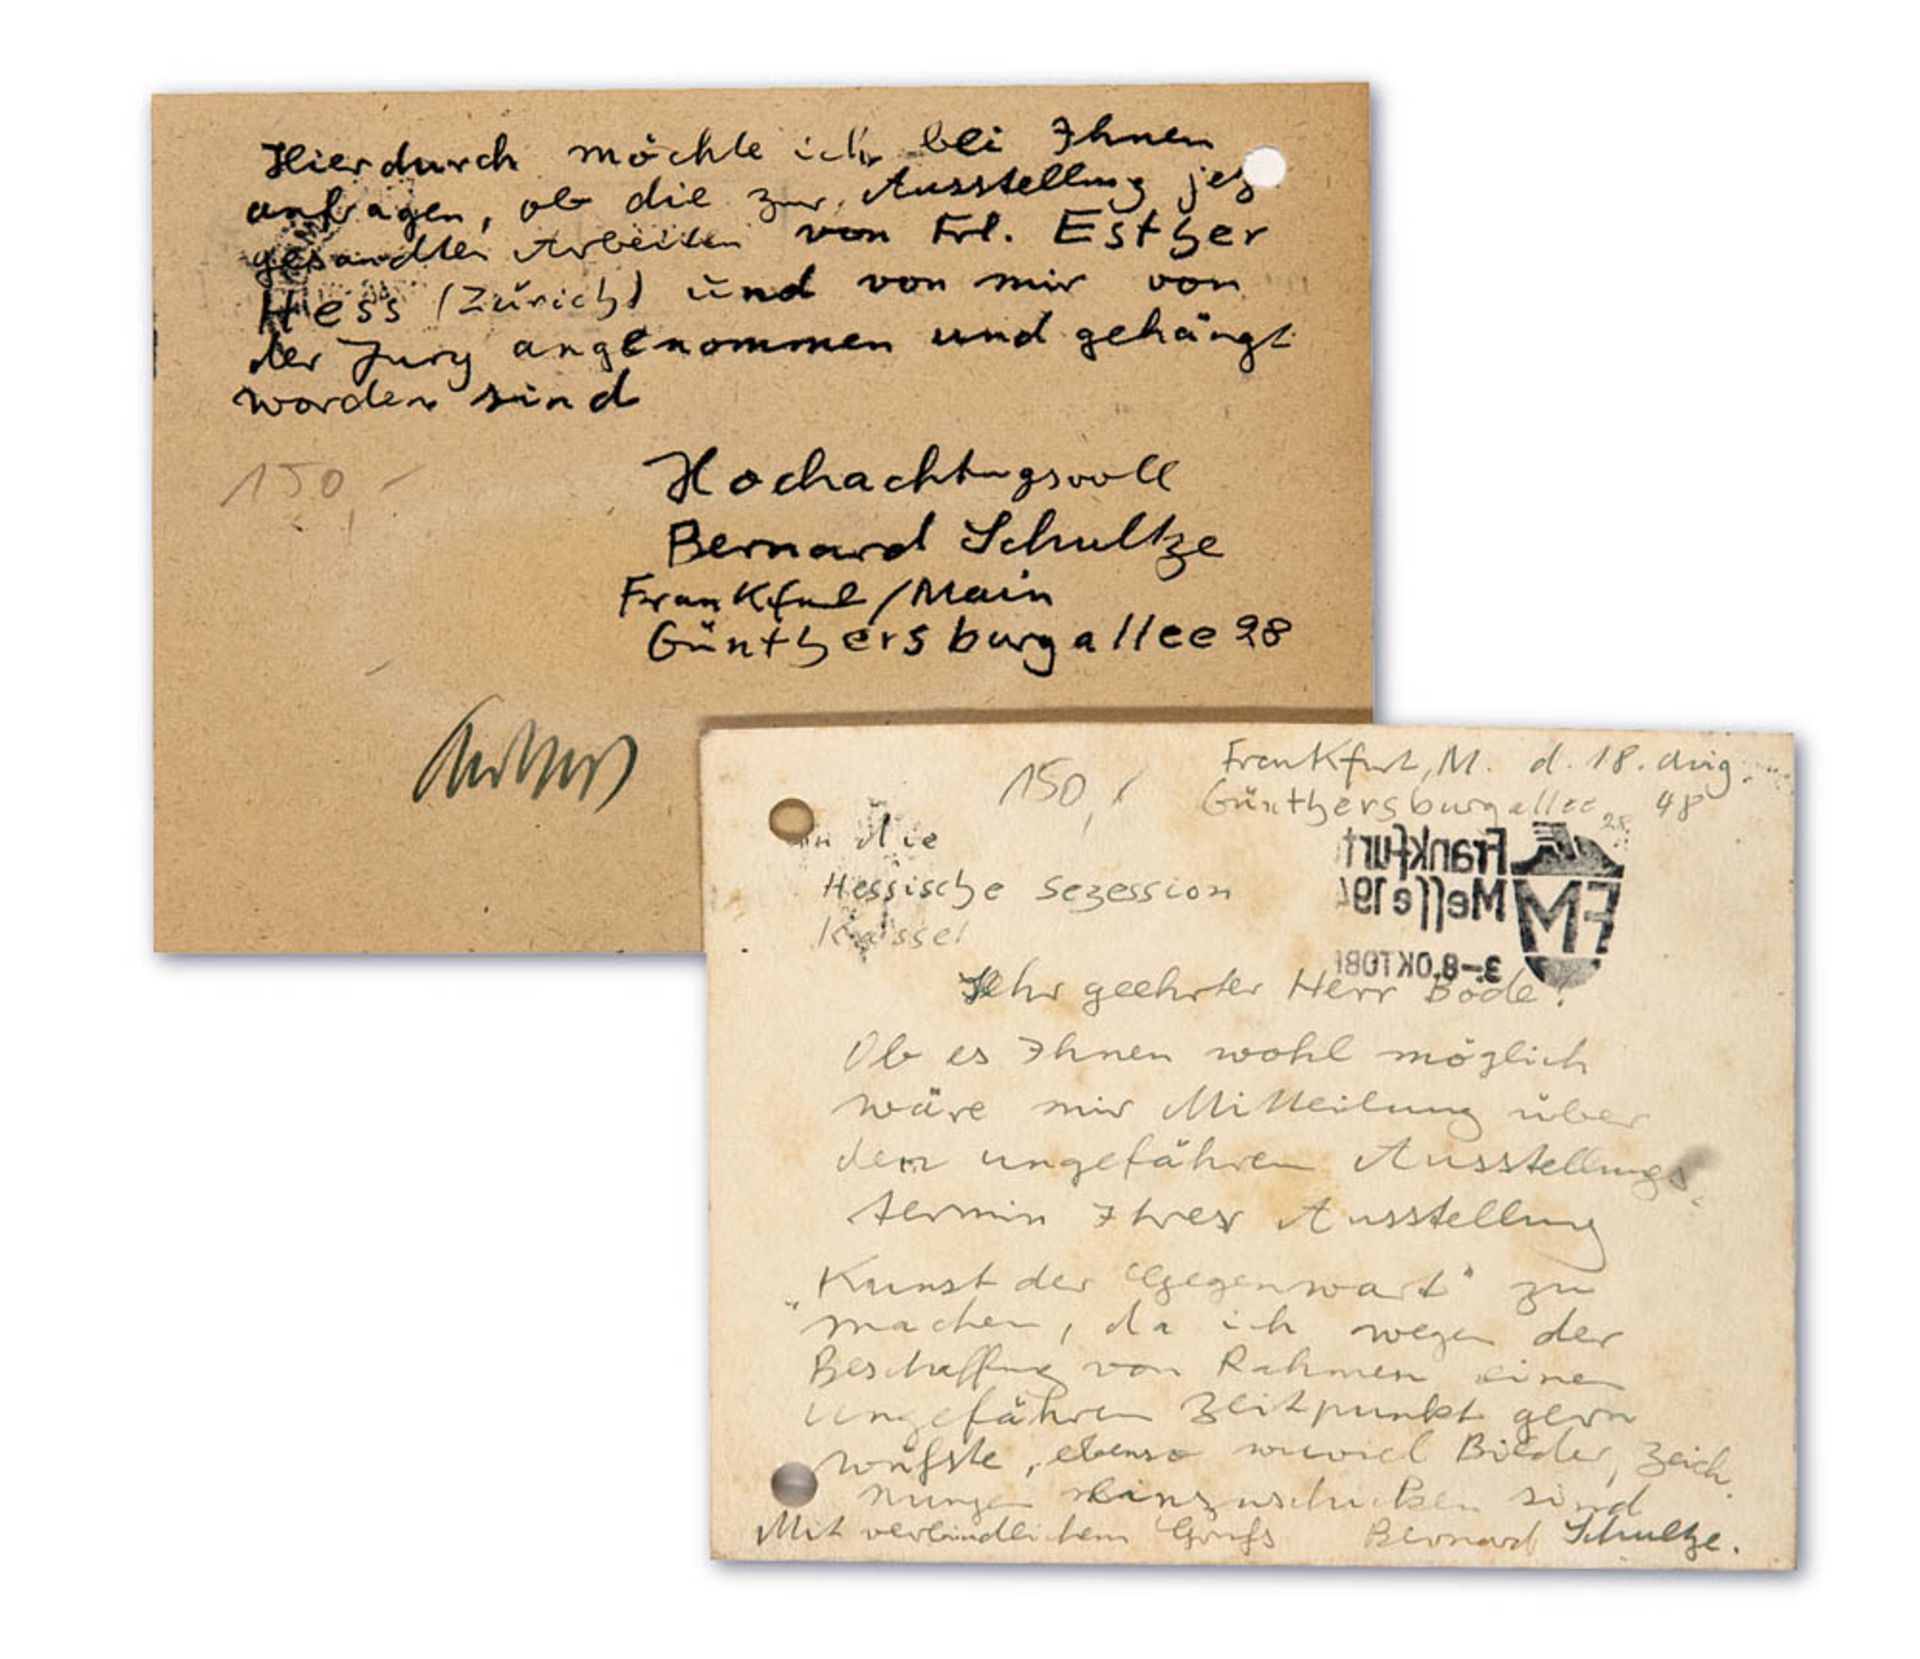 Hierdurch möchte ich bei Ihnen
anfragen, ob die zur Ausstellung
gesandten Arbeiten von Frl. Esther
Hess (Zürich) und von mir von
der Jury angenommen und gehängt
worden sind
Hochachtungsvoll
Bernard Schultze
Frankfurt/Main
Günthersburgallee 28
150,-
150,-
Frankfurt, M. d. 18. Aug.
Günthersburgallee 28 48
An die
Hessische Sezession
Kassel
Frankfurt
Messe 194
FM
3.-8. OKTOBE
Sehr geehrter Herr Bode!
Ob es Ihnen wohl möglich
wäre mir Mitteilung über
den ungefähren Ausstellungs-
termin Ihrer Ausstellung
„Kunst der Gegenwart" zu
machen, da ich wegen der
Beschaffung von Rahmen einen
ungefähren Zeitpunkt gern
wüßte, ebenso wieviel Bilder, Zeich-
nungen einzuschicken sind
Mit verbindlichem Gruß Bernard Schultze.